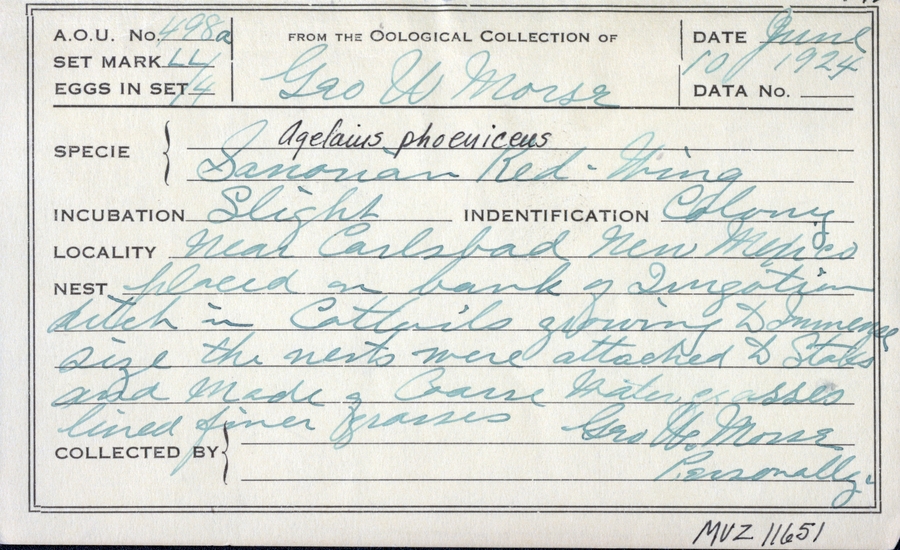 A.O.U. No. 498a
FROM THE OOLOGICAL COLLECTION OF
DATE June
SET MARK LL
10 1924
EGGS IN SET 1/4
Geo W Morse
DATA No.
SPECIE
Agelaius phoeniceus
Sanorian Red-Wing
INCUBATION Slight
INDENTIFICATION Colony
LOCALITY Near Carlsbad New Mexico
NEST placed on bank of Irrigation
ditch in Cattails growing to Immense
size the nests were attached to Stalks
and made of Coarse Water grasses
lined finer grasses
Geo W. Morse
COLLECTED BY
Personally.
MVZ 11651